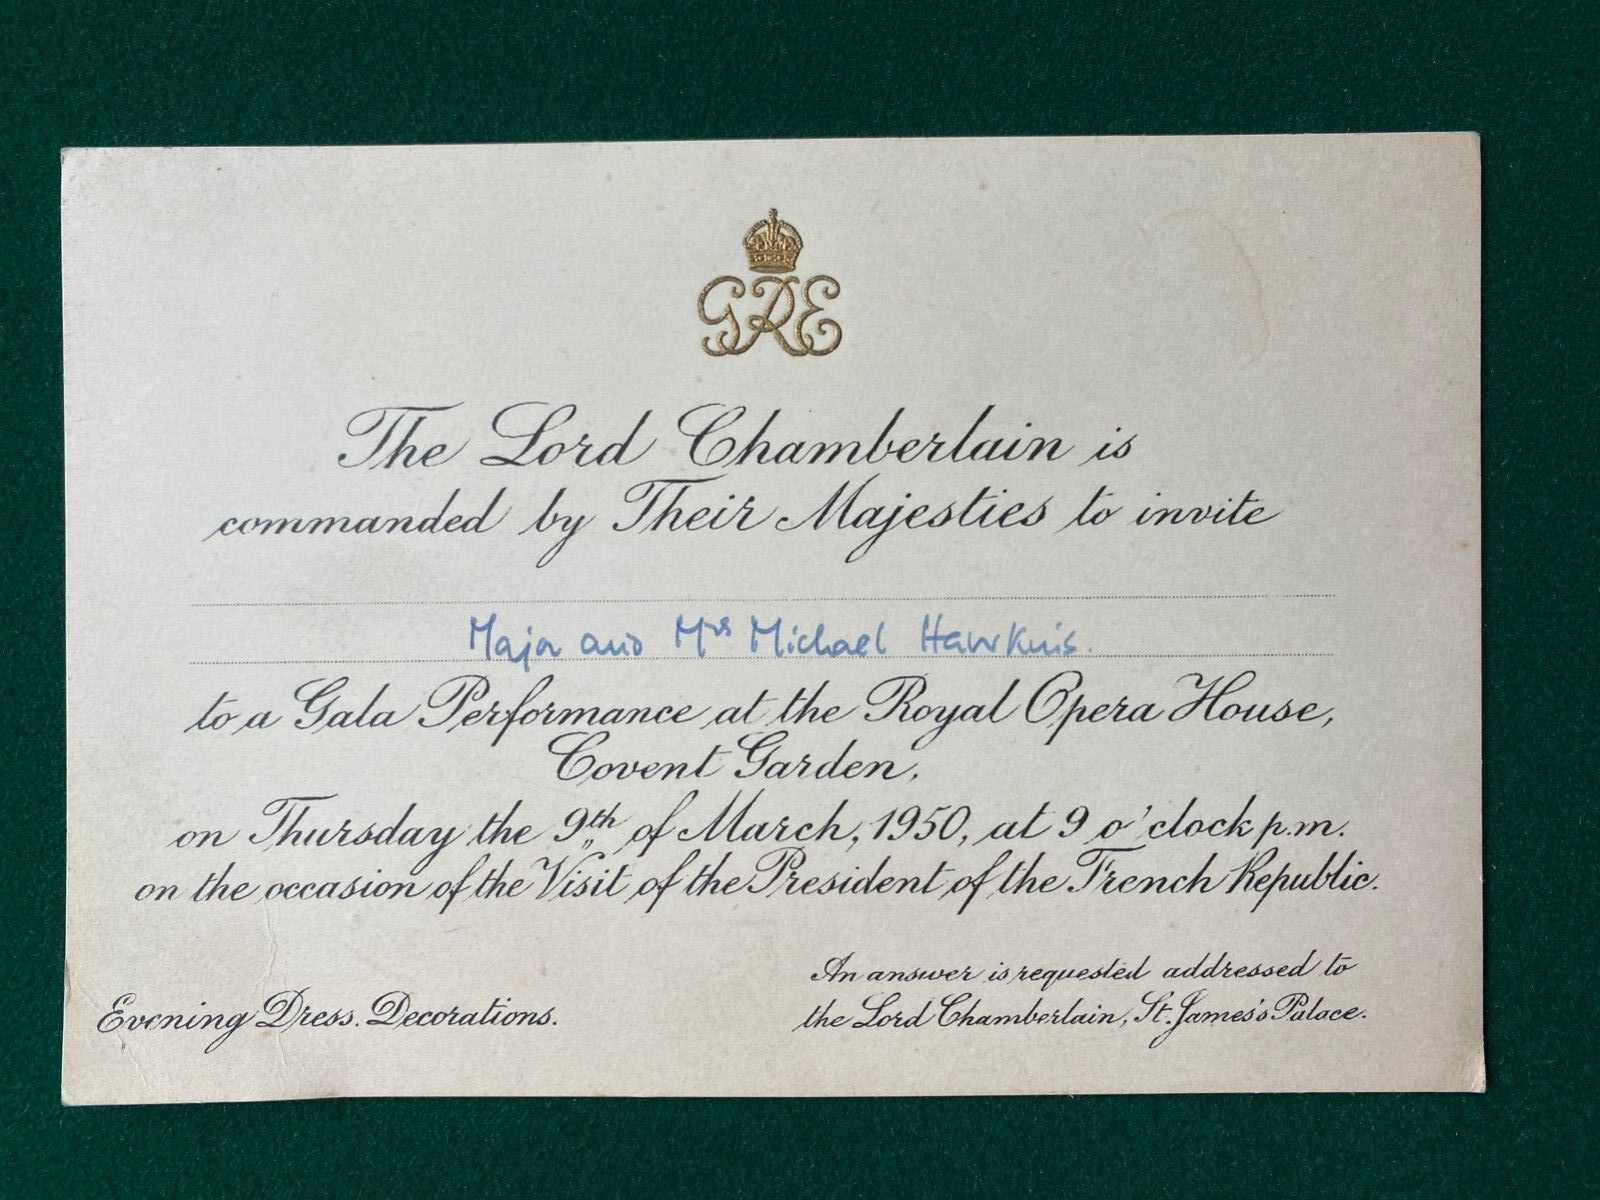 GRE
The Lord Chamberlain is
commanded by Their Majesties to invite
Major and Mrs Michael Hawkins.
to a Gala Performance at the Royal Opera House,
Covent Garden,
on Thursday the 9th of March, 1950, at 9 o'clock p.m.
on the occasion of the Visit of the President of the French Republic.
An answer is requested addressed to
the Lord Chamberlain, St. James's Palace.
Evening Dress. Decorations.